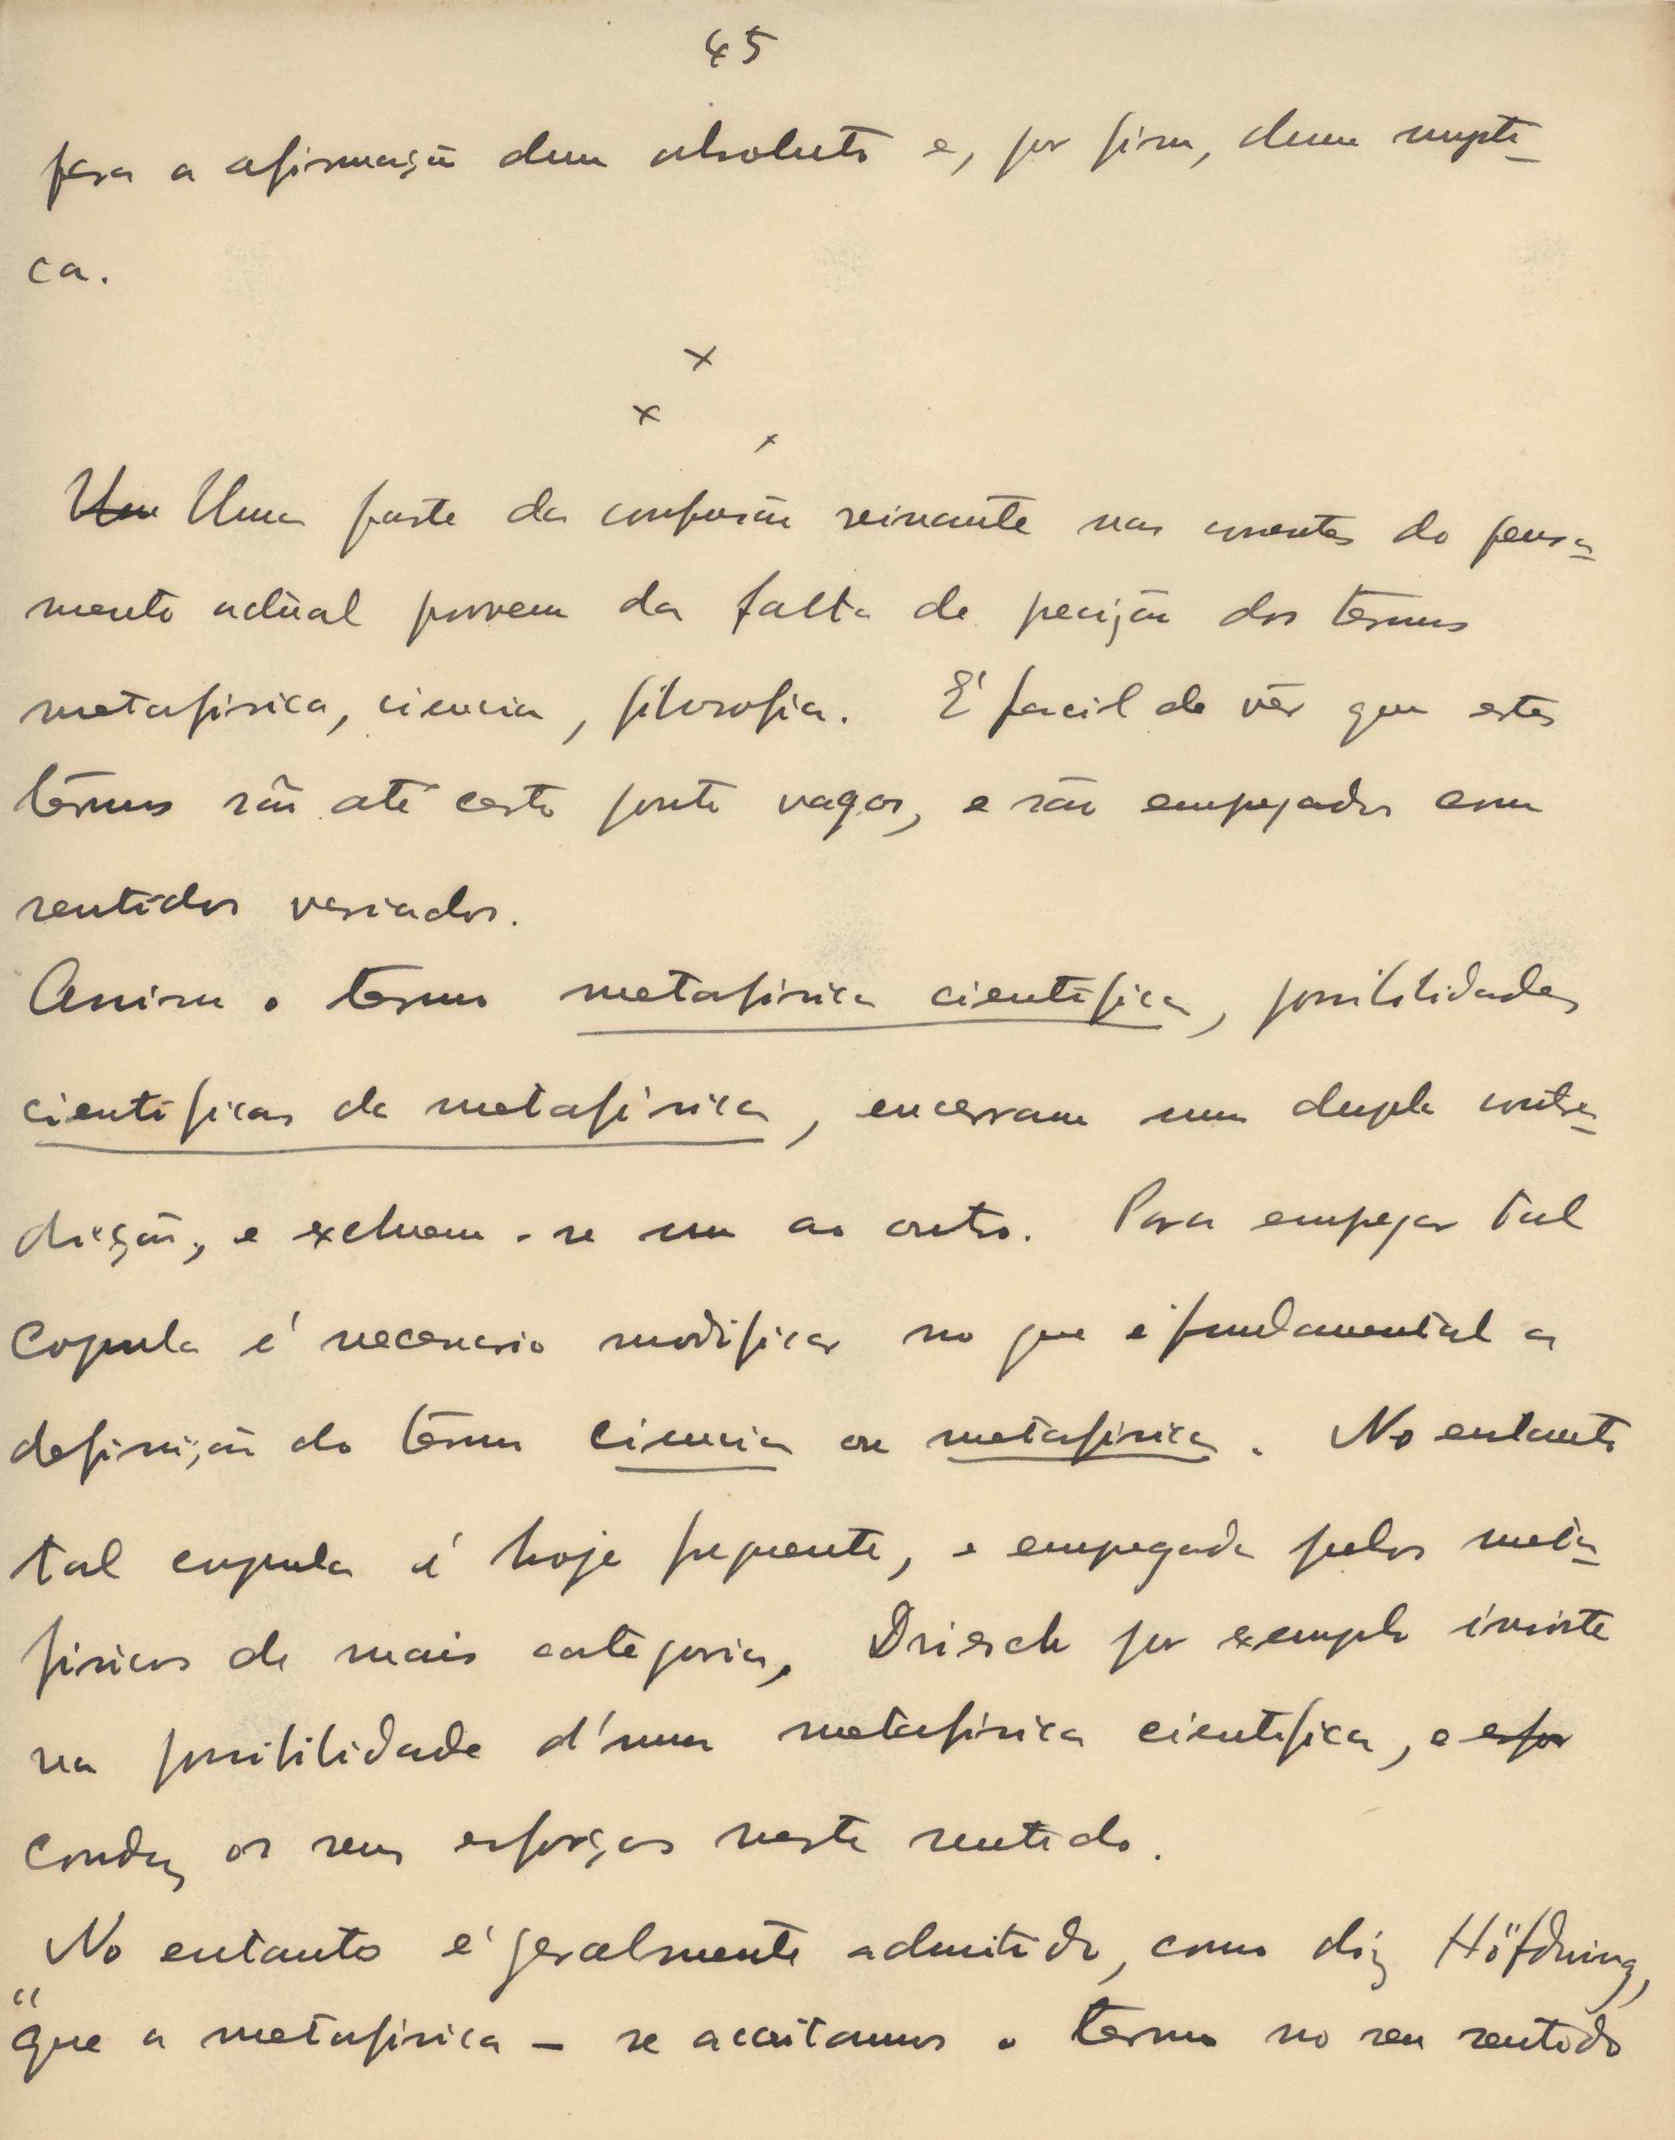 45
para a afirmação dum absoluto e, por fim, duma mysti-
ca.
x
x x
Um Uma parte da confusão reinante nas correntes do pensa-
mento actual provem da falta de precisão dos termos
metafisica, ciencia, filosofia. É facil de vêr que estes
têrmos são até certo ponto vagos, e são empregados com
sentidos variados.
Assim o termo metafisica cientifica, possibilidades
cientificas da metafísica, encerram uma dupla contra-
dicção, e excluem-se um ao outro. Para empregar tal
copula é necessario modificar no que é fundamental a
definição do têrmo ciencia ou metafisica. No entanto
tal cupula é hoje frequente, e empregada pelos meta-
fisicos de mais categoria. Driesch por exemplo insiste
na possibilidade d'uma metafisica cientifica, e esfor
conduz os seus esforços neste sentido.
No entanto é geralmente admitido, como diz Höfdning,
"que a metafisica - se aceitamos o termo no seu sentido